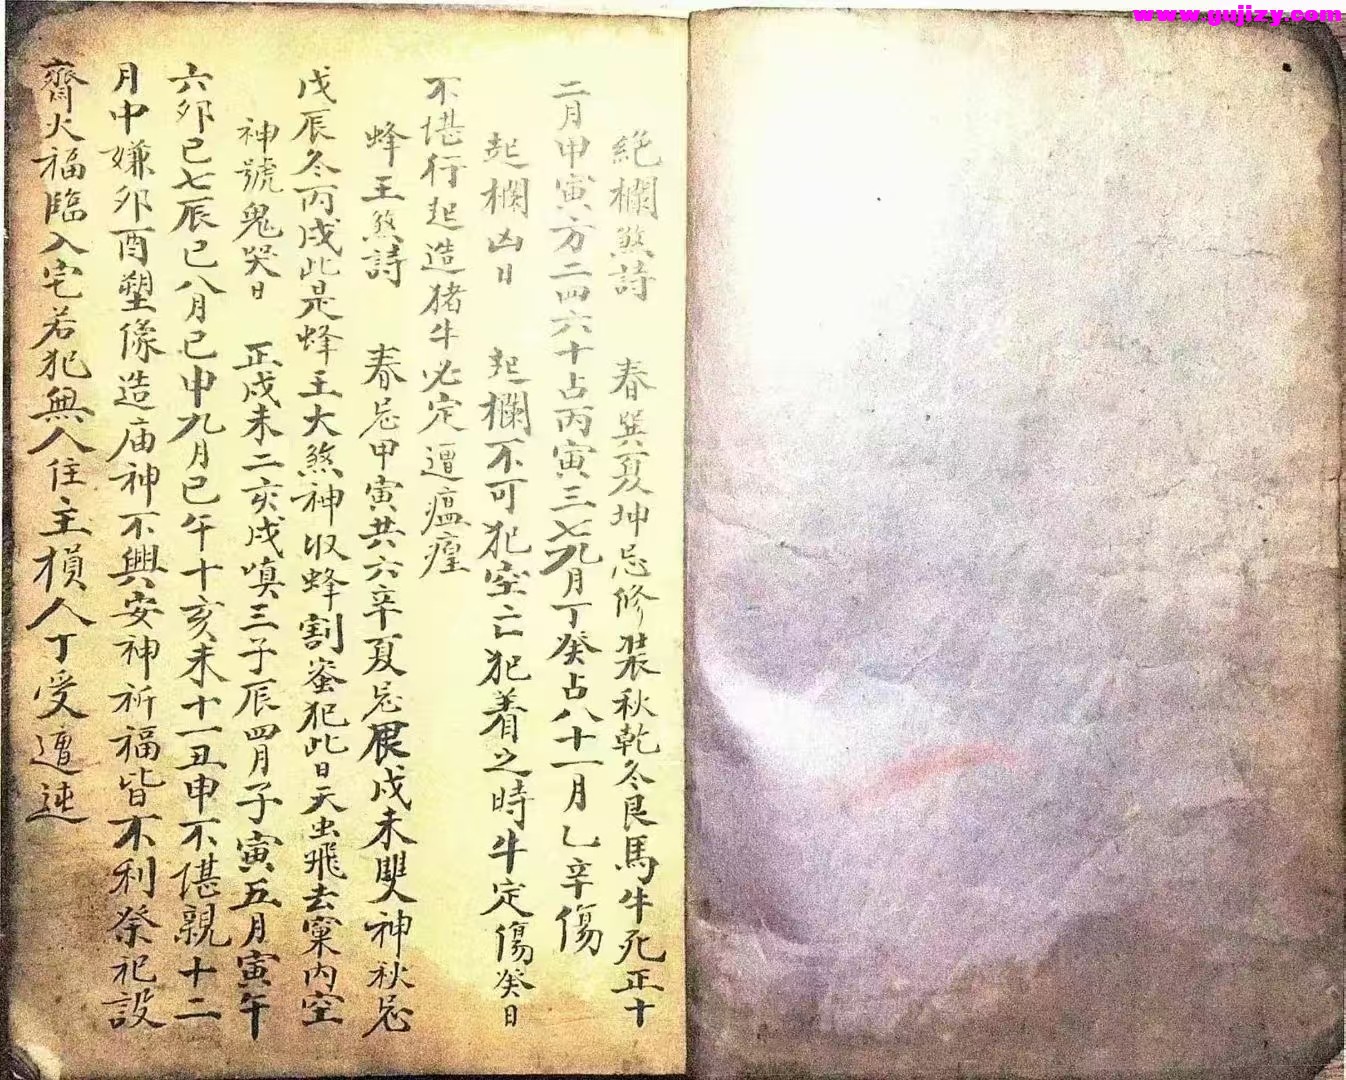 www.gujizy.com
絕欄煞詩 春巽夏坤忌修裝秋乾冬艮馬牛死正十
二月甲寅方二四六十占丙寅三七九月丁癸占八十一月乙辛傷
起欄凶日 起欄不可犯空亡犯着之時牛定傷癸日
不堪行起造猪牛必定遭瘟瘽
蜂王煞詩 春忌甲寅共六辛夏忌戊未雙神秋忌
戊辰冬丙戌此是蜂王大煞神收蜂割蜜犯此日天虫飛去窠内空
神號鬼哭日 正戌未二亥戌嗔三子辰四月子寅五月寅午
六卯巳七辰巳八月巳申九月巳午十亥未十一丑申不堪親十二
月中嫌卯酉塑像造庙神不興安神祈福皆不利祭祀設
齊火福臨入宅若犯無人住主損人丁受遭迍